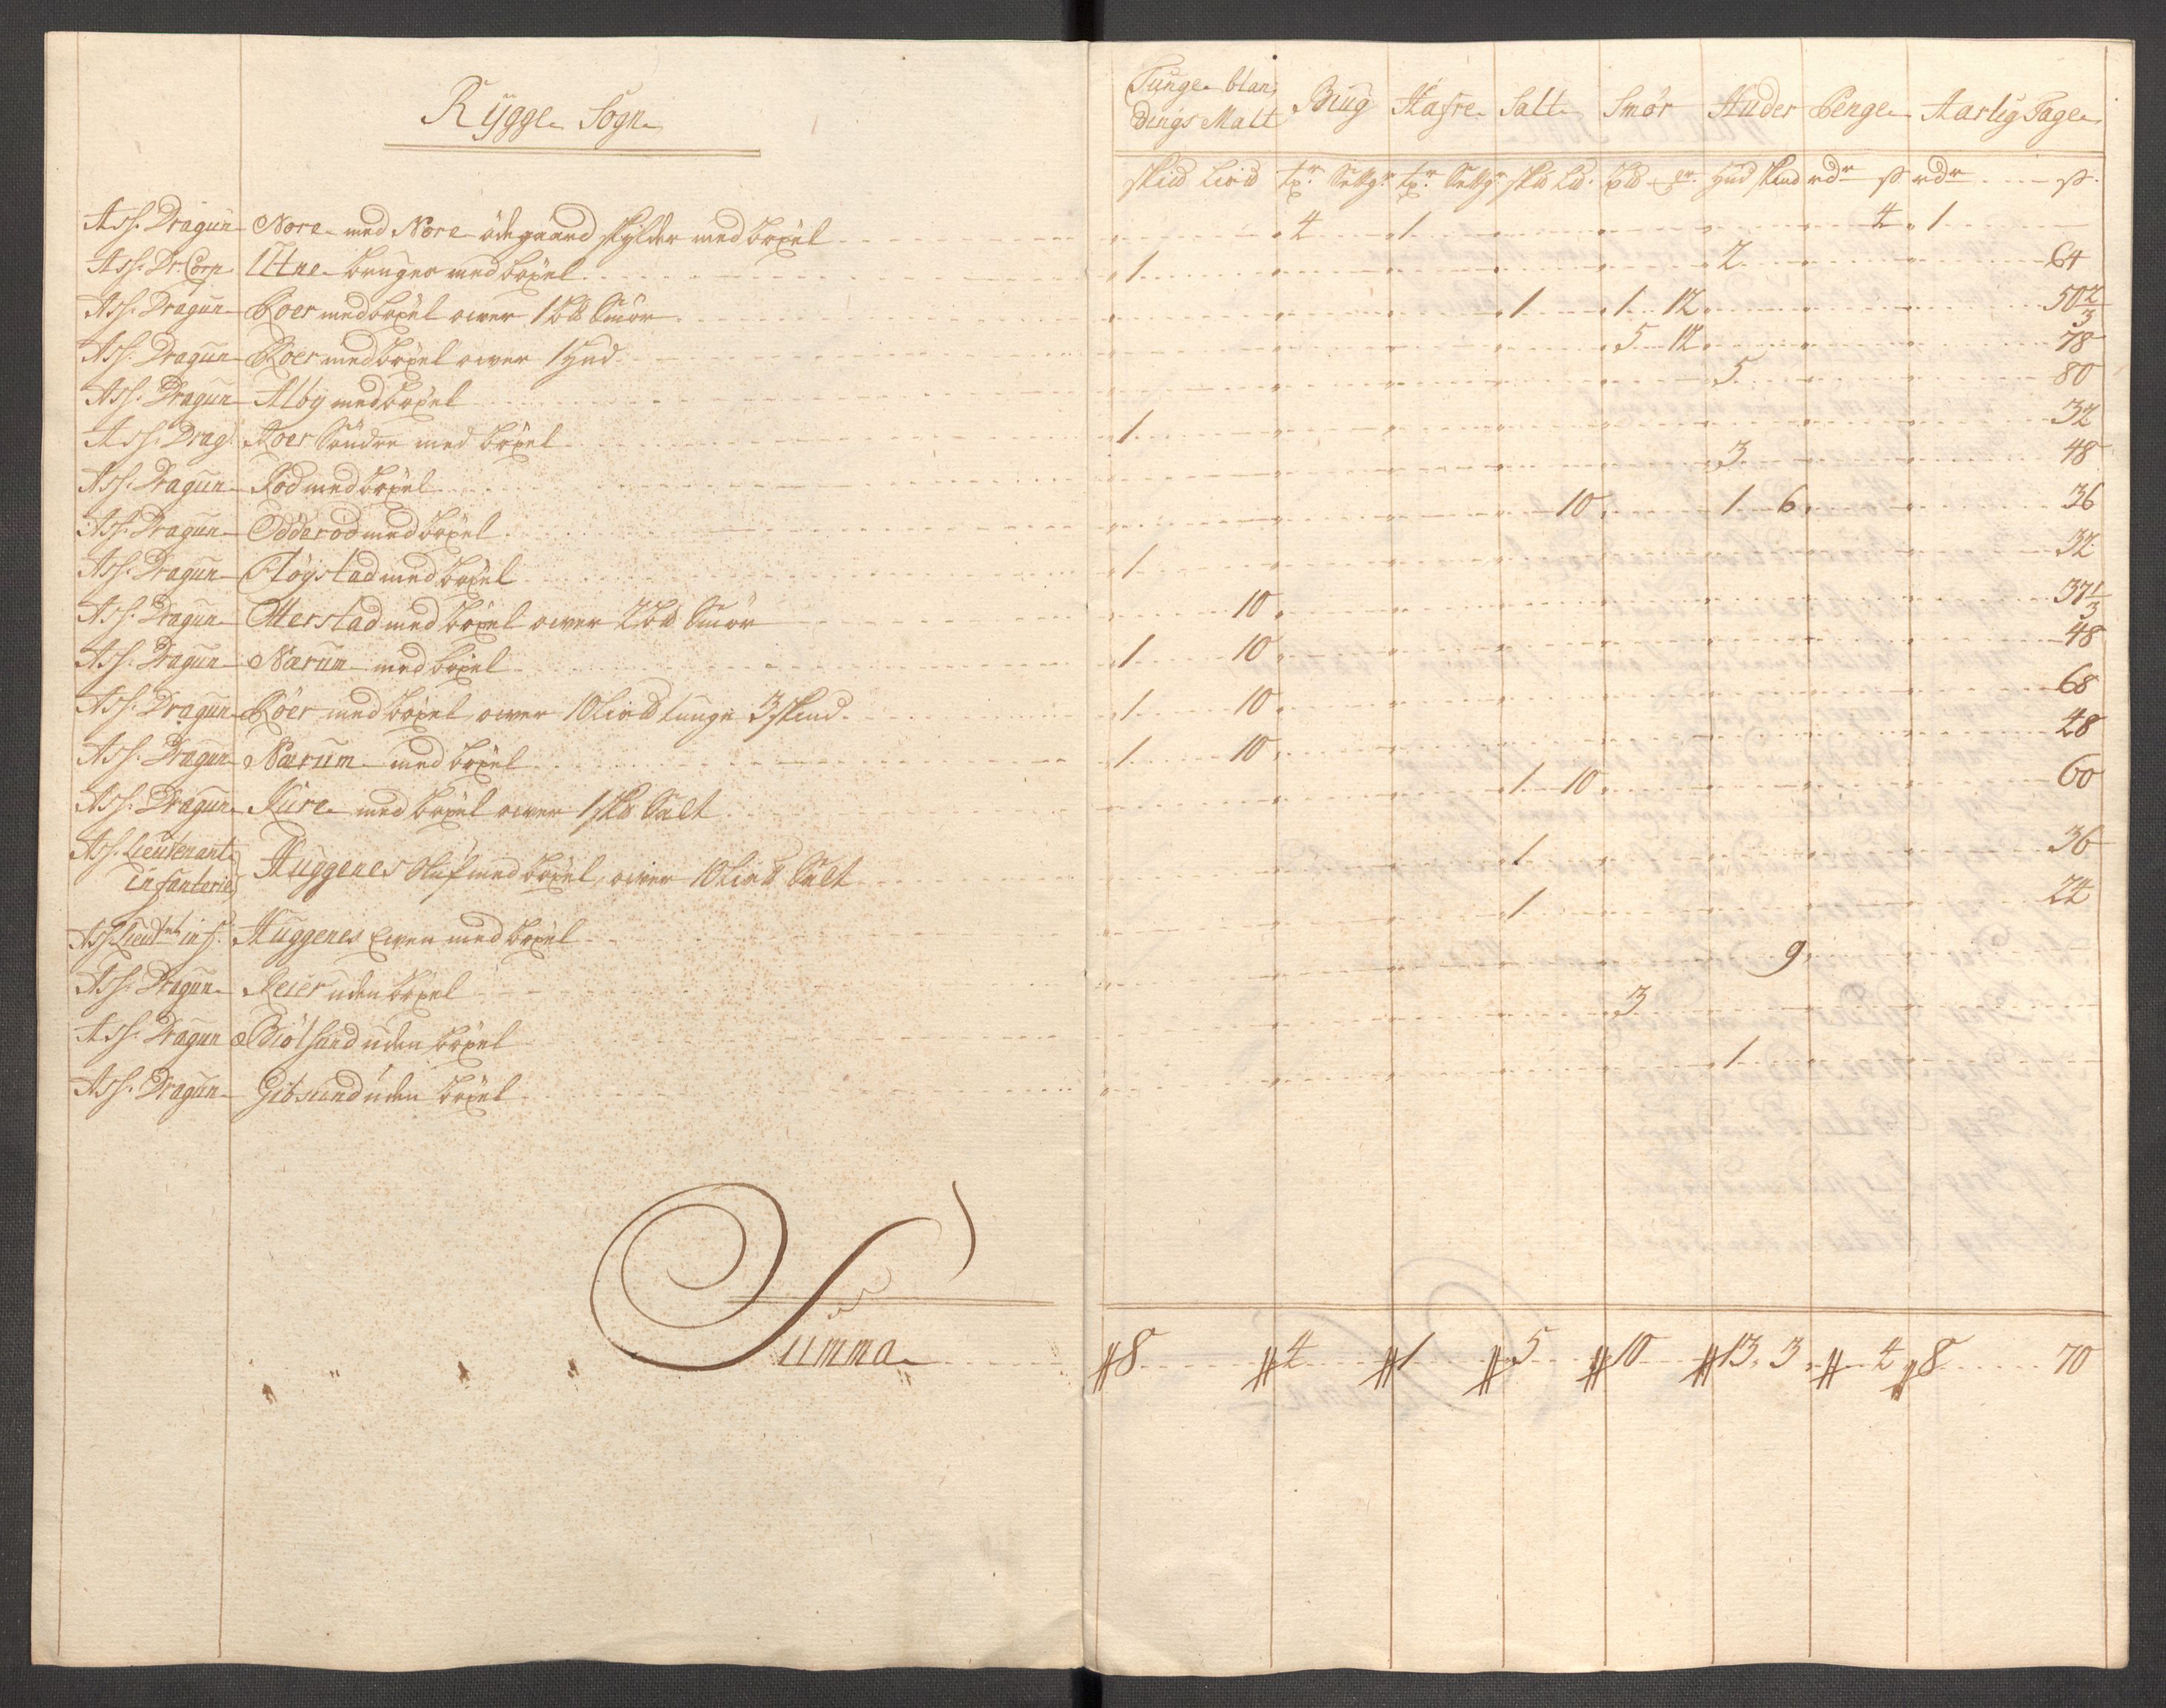 Rÿgge Sogn
Tunge blan,
dings Malt Biug Hafre Salt Smör Huder Penge Aarlig Tage
skud Liвud tr: Setgr tr: Setgr skud Lud. bud mr. hud skind rdr ß rdr ß.
Ass. Dragun Nore med Nore ödegaard skylder med böxel 4 1 4 1
Ass. Dr. Corp. Utne bruger med böxel 1 2 64
Ass. Dragun Roer med böxel ower 1 bud Smör 1 1 12 50 2/3
Ass. Dragun Roer med böxel ower 1 hud 5 12 78
Ass. Dragun Alby med böxel 5 80
Ass. Drag. Roer Söndre med böxel 1 32
Ass. Dragun Rød med böxel 3 48
Ass. Dragun Odderød med böxel 10 1 6 36
Ass. Dragun Fløystad med böxel 1 32
Ass. Dragun Otterstad med böxel ower 2 bud Smör 10 37 1/3
Ass. Dragun Nærum med böxel 1 10 48
Ass. Dragun Röer med böxel ower 10 Liud tunge 3 skind 1 10 68
Ass. Dragun Nærum med böxel 1 10 48
Ass. Dragun Kure med böxel ower 1 skud Salt 1 10 60
Ass. Lieutenant
infanterie Huggenes Oluf med böxel, ower 10 Liud Salt 1 36
Ass. Lieutnt inf. Huggenes Ewen med böxel 1 24
Ass. Dragun Reier uden böxel 9
Ass. Dragun Biølsund uden böxel 3
Ass. Dragun Gibsund uden böxel 1
Summa 8 4 1 5 10 13. 3 4 8 70